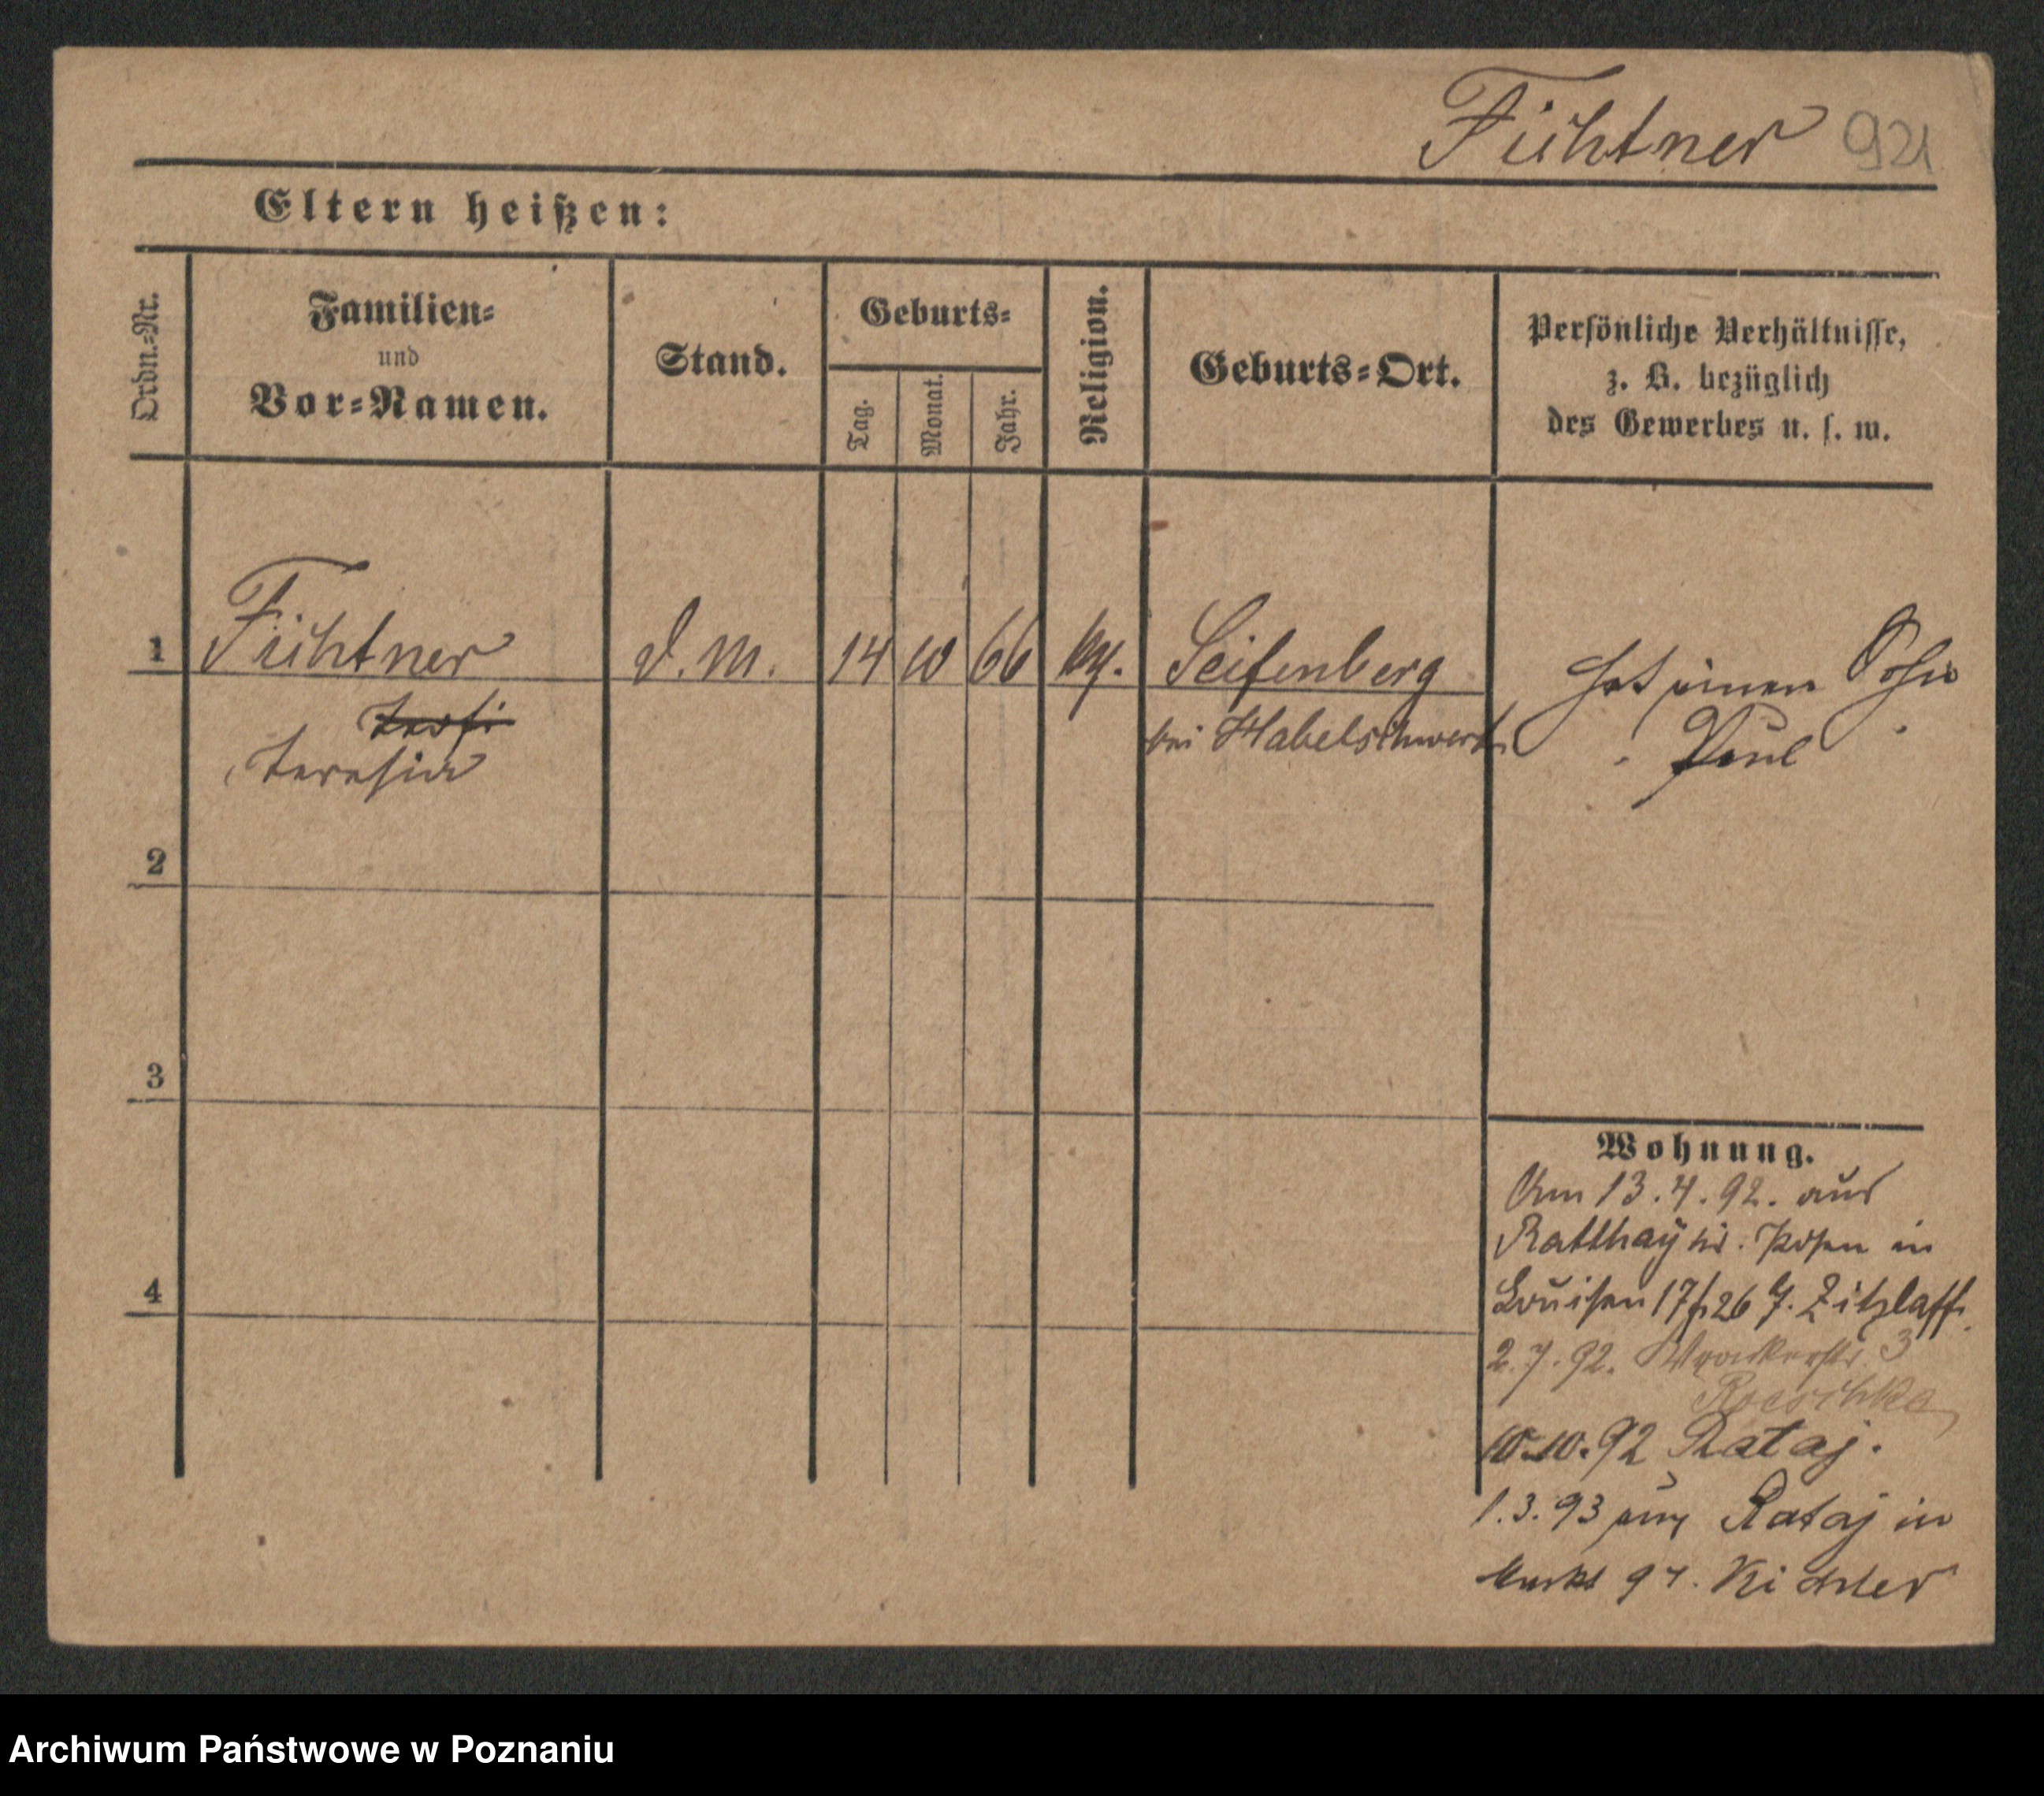 Fichtner 921
Eltern heißen:
Ordn.-Nr.
Familien-
und
Vor-Namen.
Stand.
Geburts-
Tag.
Monat.
Jahr.
Religion.
Geburts-Ort.
Persönliche Verhältnisse,
z. B. bezüglich
des Gewerbes u. s. w.
1 Fichtner d. M. 14 10 66 Seifenberg hat einen Sohn
Teresia bei Habelschwerdt Paul
2
3
4
Wohnung.
Am 13.4.92. aus
Ratthay Posen in
Louisen 17 26 Zitzlaff
2.7.92. Wronkerstr. 3
10.10.92 Rataj.
1.3.93 Rataj in
Markt